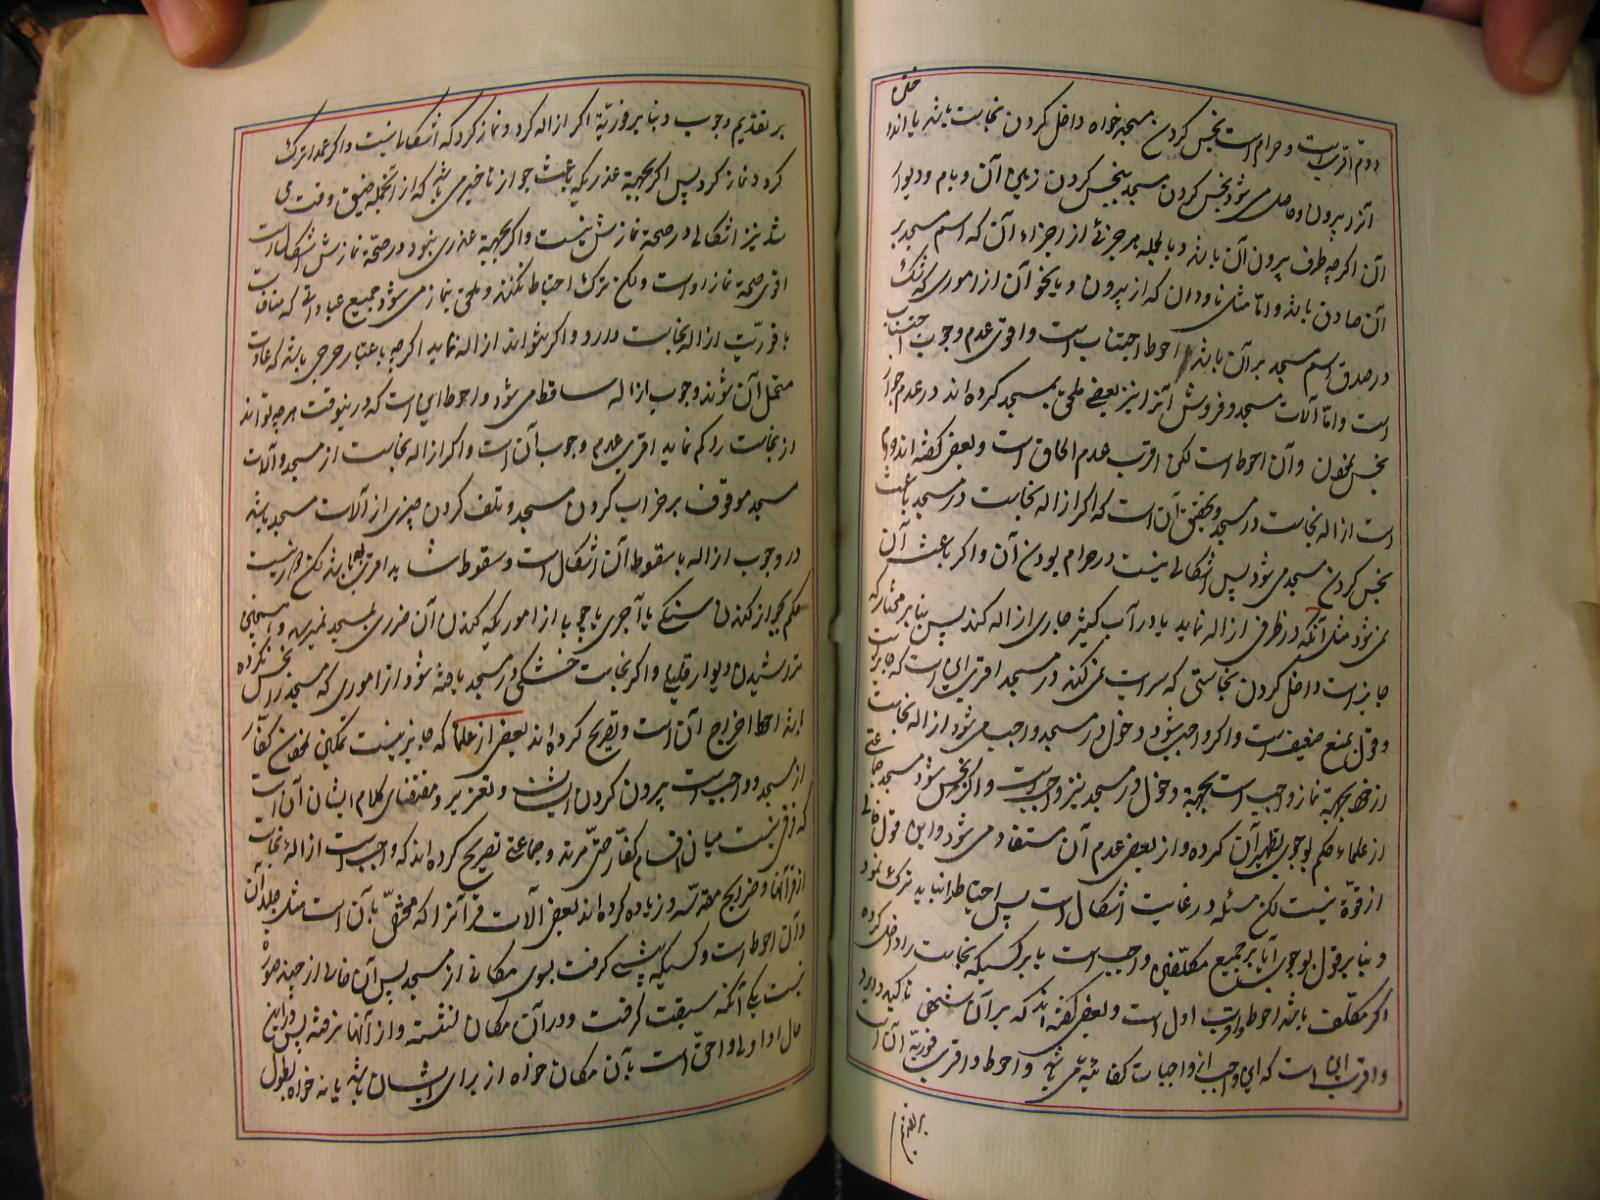 دویم اقرب است و حرام است نجس کردن مسجد خواه داخل کردن نجاست باشد یا انداختن
آنرا بیرون و حاصل می شود نجس کردن مسجد بنجس کردن زمین آن و بام و دیوار
آن اگرچه طرف بیرون آن باشد و بالجمله هر جزئی از اجزاء آن که اسم مسجد بر
آن صادق باشد و امّا مثل ناودان که از بیرون و یا نحو آن از اموری که شک
در صدق اسم مسجد بر آن باشد احوط اجتناب است و اقوی عدم وجوب اجتناب
است و امّا آلات مسجد و فروش آنرا نیز بعضی ملحق بمسجد کرده اند در عدم جواز
نجس نمودن و آن احوط است لکن اقرب عدم الحاق است و بعضی گفته اند حرام
است ازاله نجاست در مسجد و تحقیق آن است که اگر ازاله نجاست در مسجد باعث
نجس کردن مسجد می شود پس اشکالی نیست در حرام بودن آن و اگر باعث آن
نمی شود مثل آنکه در ظرفی ازاله نماید یا در آب کثیر جاری ازاله کند پس بنابر مختار که
جایز است داخل کردن نجاستی که سرایت نمی کند در مسجد اقرب این است که جایز است
و قول بمنع ضعیف است و اگر واجب شود دخول در مسجد واجب می شود ازاله نجاست
از خود بجهة نماز واجب است بجهة دخول در مسجد نیز واجب است و اگر نجس شود مسجد جماعتی
از علماء حکم بوجوب تطهیر آن کرده و از بعضی عدم آن مستفاد می شود و این قول خالی
از قوّة نیست لکن مسئله در غایت اشکال است پس احتیاط را نباید ترک نمود
و بنابر قول بوجوب آیا بر جمیع مکلّفین واجب است یا بر کسیکه نجاست را داخل کرده
اگر مکلّف باشد احوط و اقرب اول است و بعضی گفته اند که بر آن شخص تاکید دارد
و اقرب این است که این واجب از واجبات کفائیه می باشد و احوط و اقرب فوریّة آن است
بر تقدیم
بر تقدیم وجوب و بنابر فوریّة اگر ازاله کرد و نماز کرد که اشکالی نیست و اگر عمدا ترک
کرد و نماز کرد پس اگر بجهة عذریکه باعث جواز تاخیر می باشد که از آنجمله ضیق وقت می
باشد نیز اشکالی در صحة نمازش نیست و اگر بجهة عذری نبود در صحّة نمازش اشکال است
اقوی صحة نماز او است ولکن ترک احتیاط نکنند و ملحق بنماز می شود جمیع عباداتی که منافات
با فوریّت ازاله نجاست دارد و اگر نتواند ازاله نماید اگرچه باعتبار حرجی باشد که عادت
متحمل آن نشوند وجوب ازاله ساقط می شود و احوط این است که در اینوقت هرچه تواند
از نجاست را کم نماید اقرب عدم وجوب آن است و اگر ازاله نجاست از مسجد و آلات
مسجد موقوف بر خراب کردن مسجد و تلف کردن چیزی از آلات مسجد باشد
در وجوب ازاله یا سقوط آن اشکال است و سقوط شاید اقرب باشد لکن دور نیست
حکم بجواز کندن سنگی یا آجری یا چوب یا از امور یکه کندن آن ضرری بمسجد نمیرسد و همچنین
تراشیدن دیوار قلیلی و اگر نجاست خشکی در مسجد یافته شود از اموری که مسجد را نجس نکرده
باشد احوط اخراج آن است و تصریح کرده اند بعضی از علما که جایز نیست تمکین نمودن کفّار
از مسجد و واجب است بیرون کردن ایشان و تعزیر و مقتضای کلام ایشان آن است
که فرقی نیست میان اقسام کفّار حتی مرتد و جماعتی تصریح کرده اند که واجب است ازالهٔ نجاسات
از قرآنها و ضرایح مقدّسه و زیاده کرده اند بعضی آلات قرآنرا که مختصّ بآن است مثل جلد آن
و آن احوط است و کسیکه پیشی گرفت بسوی مکانی از مسجد پس آن خالی از چند صورة
نیست یکی آنکه سبقت گرفت و در آن مکان نشسته و از آنجا نرفته پس در این
حال او اولی و احقّ است بآن مکان خواه از برای ایشان باشد یا نه خواه بطول